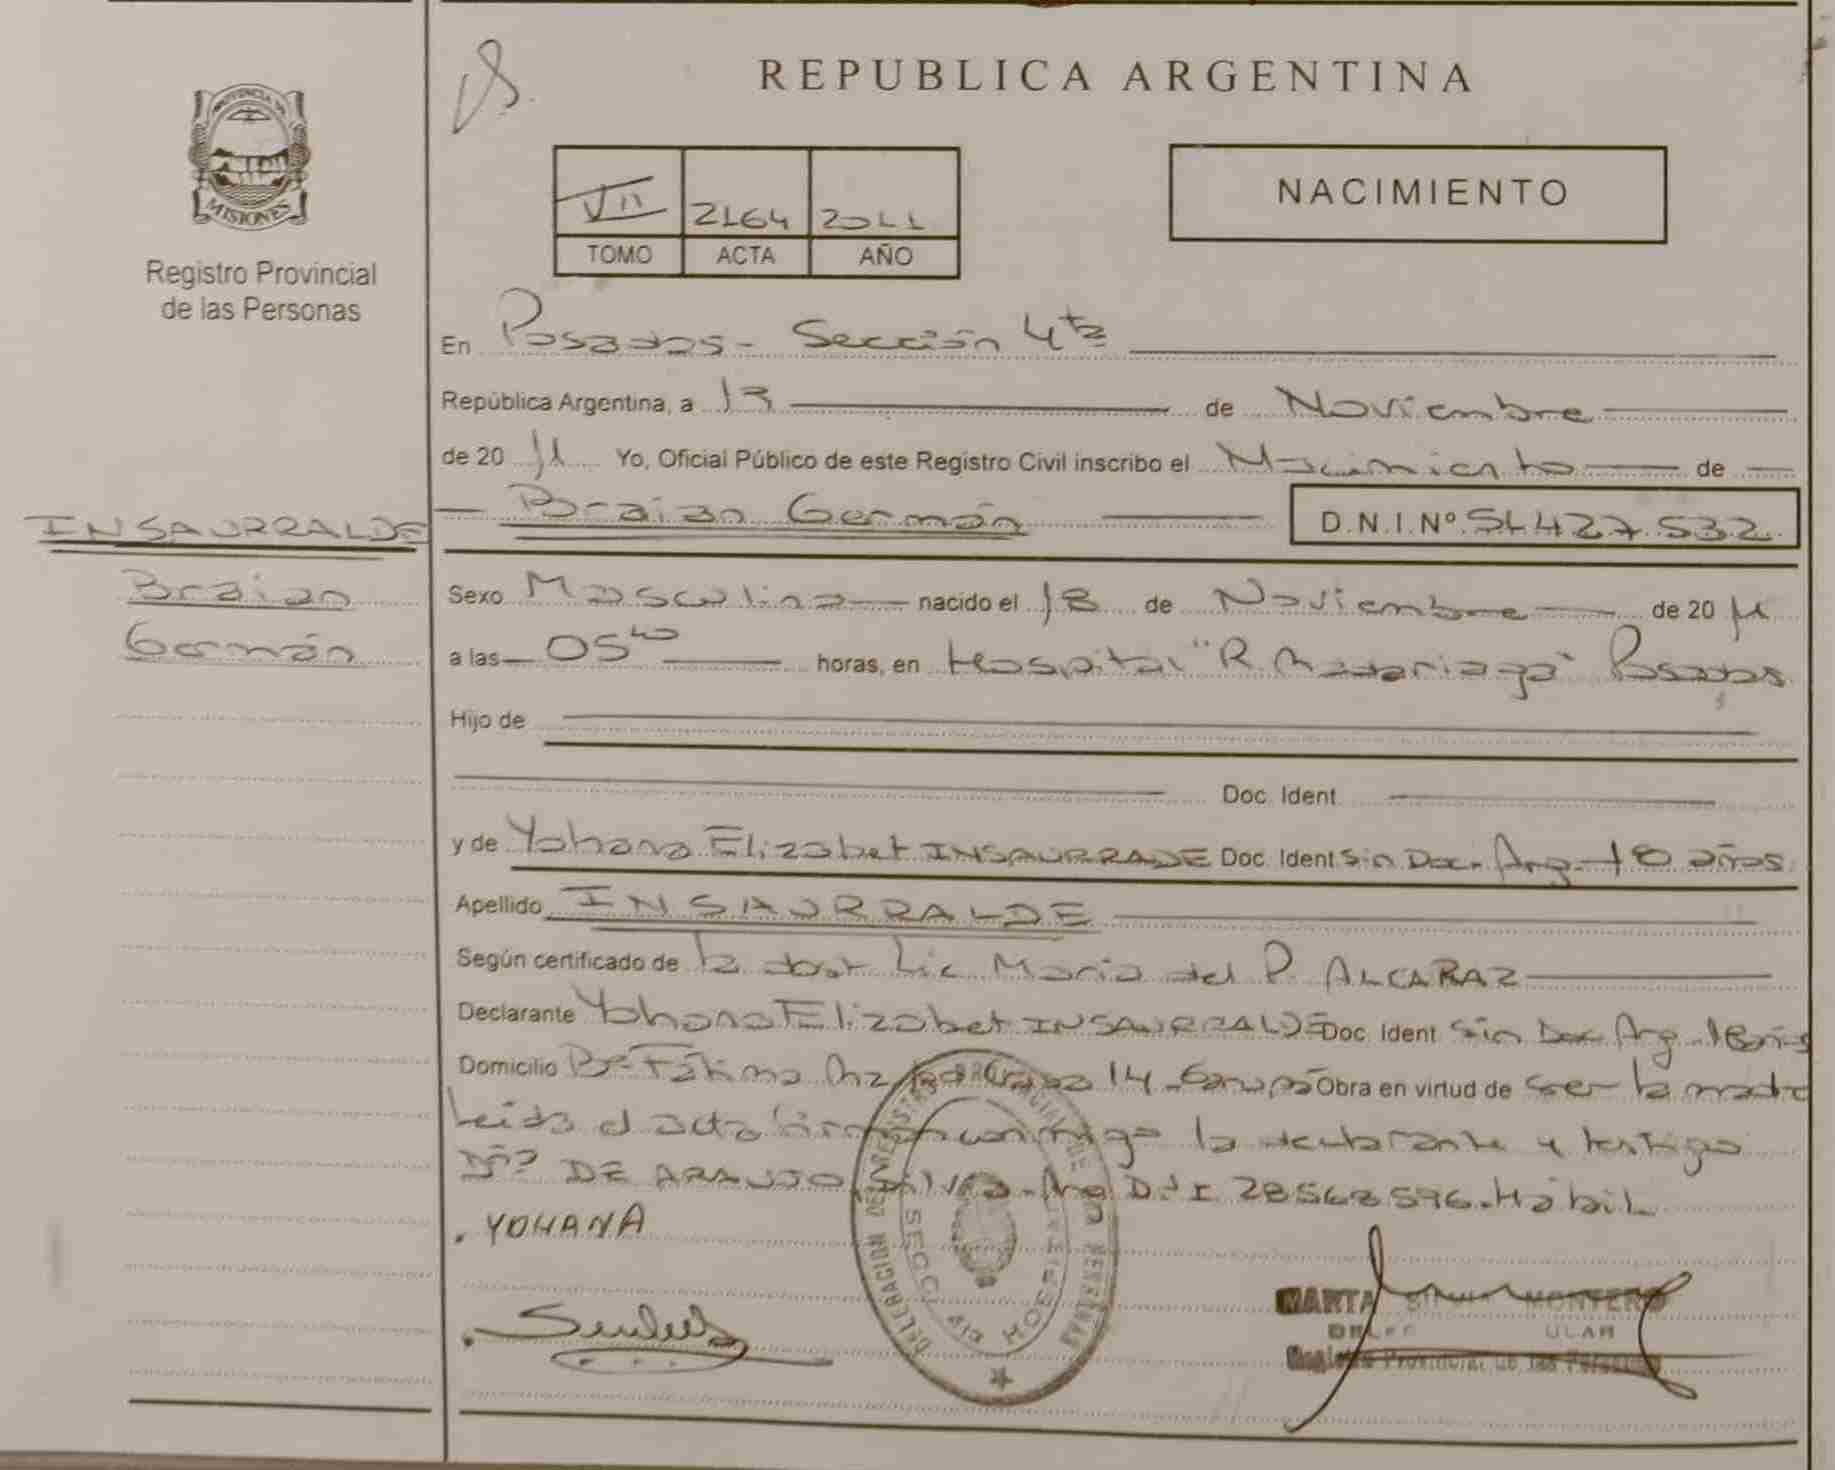 REPUBLICA ARGENTINA
PROVINCIA DE
MISIONES
Registro Provincial
de las Personas
VII 2164 2011
TOMO ACTA AÑO
NACIMIENTO
En Posadas - Sección 4ta
República Argentina, a 13 de Noviembre
de 20 11 Yo, Oficial Público de este Registro Civil inscribo el Nacimiento de
Braian Germán D.N.I.Nº 51.427.532
INSAURRALDE
Braian
Germán
Sexo Masculino nacido el 18 de Noviembre de 20 11
a las 05 40 horas, en Hospital "R. Madariaga" Posadas
Hijo de
Doc. Ident
y de Yohana Elizabet INSAURRADE Doc. Ident Sin Doc. Arg. 18 años
Apellido INSAURRALDE
Según certificado de la obst Lic Maria del P. ALCARAZ
Declarante Yohana Elizabet INSAURRALDE Doc. Ident Sin Doc Arg. 18 años
Domicilio Bº Fátima Mz 14 - Garupá Obra en virtud de ser la madre
Leída el acta firman conmigo la declarante y testigo
Dña DE ARAUJO Arg D.N.I 28568596. Hábil
. YOHANA
DELEGACION
SECC 4ta HOSPITAL
MARTA SILVIA MONTERO
Registro Provincial de las Personas